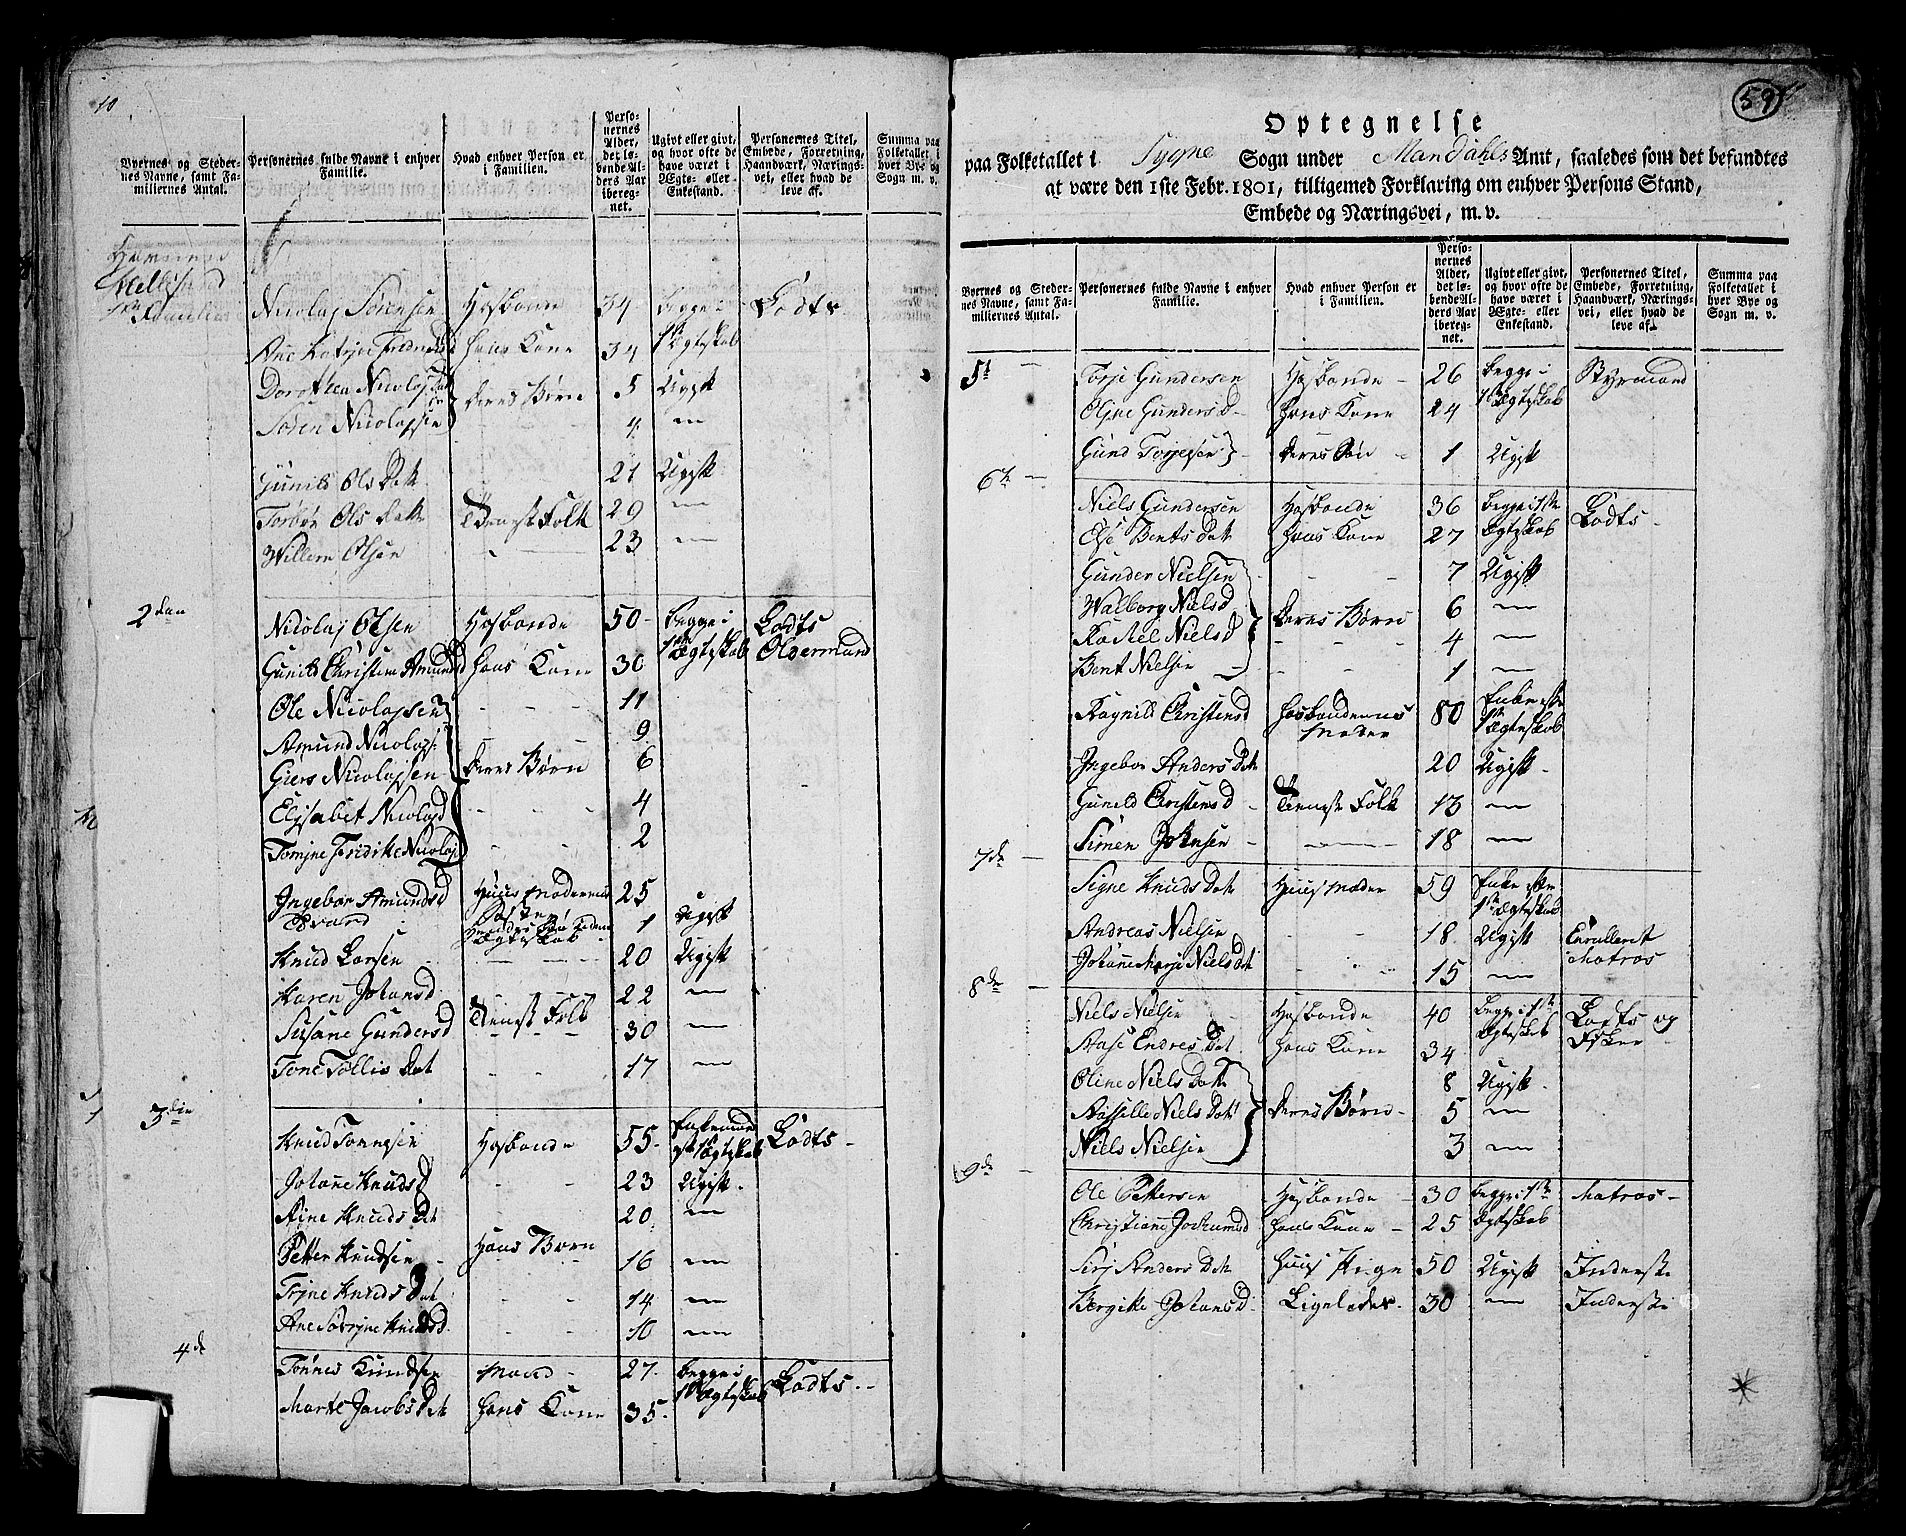 10
Byernes og Stedernes Navne, samt Familiernes Antal.
Personernes fulde Navne i enhver Familie.
Hvad enhver Person er i Familien.
Personernes Alder, det løbende Alders Aar iberegnet.
Ugivt eller givt, og hvor ofte de have været i Ægte- eller Enkestand.
Personernes Titel, Embede, Forretning, Haandværk, Næringsvei, eller hvad de leve af.
Summa paa Folketallet i hver Bye og Sogn m. v.
Hellesund
Nicolaj Sörensen Hosbonde 34 Begge i Lodts
Dorothea Nicolajs Dat 5 Ugift
Deres Børn
Sören Nicolajsen 4
Gunild Ols Dat 21 Ugift
Torbör Ols Datt Tienest Folk 29
Willem Olsen 23
2den
Nicolaj Olsen Hosbonde 50 Begge i Lodts
1ste Ægteskab Oldermand
Gunild Christena Amunds d Hans Kone 30
Ole Nicolajsen 11
Amund Nicolajs 9
Giers Nicolajsen Deres Børn 6
Elisabet Nicolajs d 4
2
Ingebor Amunds d Huus Moderens 25
Søster
Evard 1 Ugift
Knud Larsen 20 Ugift
Karen Johans d 22
Susane Gunders d Tienest Folk 30
Tone Tollis Dat 17
3die
Knud Tönnesen Hosbonde 55 Enkemand Lodts
Johane Knuds d 23 Ugift
Aine Knuds Dat 20
Hans Børn
Petter Knudsen 16
Trine Knuds Dat 14
10
4de
Tönnes Knudsen Mand 27 Begge i Lodts
1ste Ægteskab
Marte Jacobs Dat Hans Kone 35
59
Optegnelse
paa Folketallet i Sygne Sogn under Mandahls Amt, saaledes som det befandtes
at være den 1ste Febr. 1801, tilligemed Forklaring om enhver Persons Stand,
Embede og Næringsvei, m. v.
Byernes og Stedernes Navne, samt Familiernes Antal.
Personernes fulde Navne i enhver Familie.
Hvad enhver Person er i Familien.
Personernes Alder, det løbende Alders Aar iberegnet.
Ugivt eller givt, og hvor ofte de have været i Ægte- eller Enkestand.
Personernes Titel, Embede, Forretning, Haandværk, Næringsvei, eller hvad de leve af.
Summa paa Folketallet i hver Bye og Sogn m. v.
5t
Torje Gundersen Hosbonde 26 Begge i Styrmand
1ste Ægteskab
Oline Gunders d Hans Kone 24
Gund Torjesen Deres Søn 1 Ugift
6te
Niels Gundersen Hosbonde 36 Begge i 1ste Lodts
Else Bents Dat Hans Kone 27 Ægteskab
Gunder Nielsen 7 Ugift
Walborg Niels d Deres Børn 6
Rachel Niels d 4
Bent Nielsen 1
Ragnild Christens d Hosbondens 80 Enke efter
Moder 1ste Ægteskab
Ingebor Anders Dat 20 Ugift
Gunild Christens d Tienest Folk 13
Simen Johnsen 18
7de
Signe Knuds Dat Huus Moder 59 Enke efter
1ste Ægteskab
Andreas Nielsen 18 Ugift Enrulleret
Matros
Johane Marje Niels Dat 15
8de
Niels Nielsen Hosbonde 40 Begge i 1ste Lodts og
Aase Endres Dat Hans Kone 34 Ægteskab Fisker
Oline Niels Datt 8 Ugift
Assille Niels Dat Deres Børn 5
Niels Nielsen 3
9de
Ole Pettersen Hosbonde 30 Begge i 1ste Matros
Christiane Jochums d Hans Kone 25 Ægteskab
Siri Anders Dat Huus Pige 50 Ugift Inderste
Bergitte Johans d Ligeledes 30 Inderste